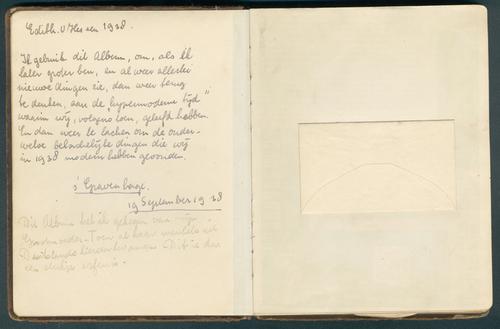 Edith. v. Hessen 1938.
Ik gebruik dit Album, om, als ik
later groter ben, en al weer allerlei
nieuwe dingen zie, dan weer terug
te denken, aan de "hypermoderne tijd"
waarin wij, volgens toen, geleefd hebben.
En dan weer te lachen om de ouder-
wetse belachelijke dingen die wij
in 1938 modern hebben gevonden.
s' Gravenhage.
19 September 1938
Dit Album heb ik gekregen van mijn
Grootmoeder. Toen al haar meubels uit
Duitsland hierheen kwamen. Dit is dan
een stukje erfenis.